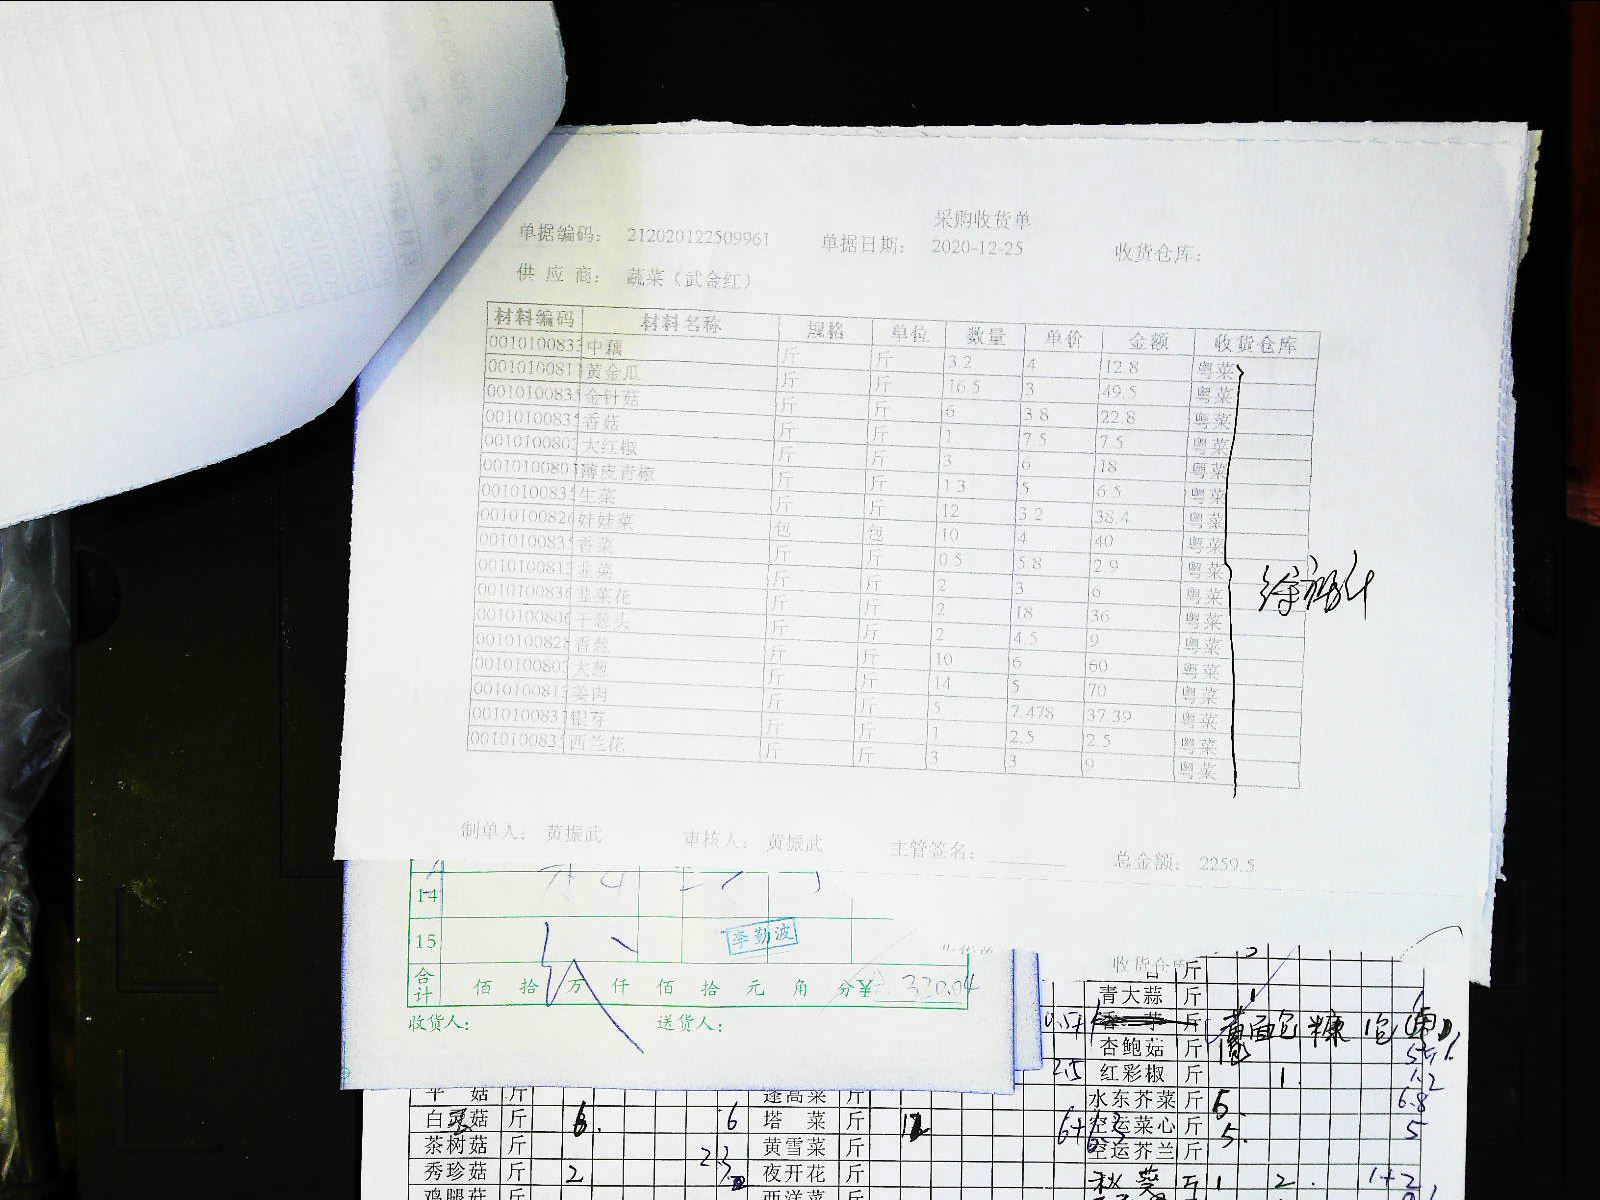 采购收货单
单据编码： 212020122509961 单据日期： 2020-12-25 收货仓库：
供 应 商： 蔬菜（武金红）
材料编码 材料名称 规格 单位 数量 单价 金额 收货仓库
001010083 中藕 斤 斤 3.2 4 12.8 粤菜
001010081 黄金瓜 斤 斤 16.5 3 49.5 粤菜
001010083 金针菇 斤 斤 6 3.8 22.8 粤菜
001010083 香菇 斤 斤 1 7.5 7.5 粤菜
001010080 大红椒 斤 斤 3 6 18 粤菜
001010080 薄皮青椒 斤 斤 1.3 5 6.5 粤菜
001010083 生菜 斤 斤 12 3.2 38.4 粤菜
001010082 娃娃菜 包 包 10 4 40 粤菜
001010083 香菜 斤 斤 0.5 5.8 2.9 粤菜
001010081 韭菜 斤 斤 2 3 6 粤菜
001010083 韭菜花 斤 斤 2 18 36 粤菜
001010080 干葱头 斤 斤 2 4.5 9 粤菜
001010082 香葱 斤 斤 10 6 60 粤菜
001010080 大葱 斤 斤 14 5 70 粤菜
001010081 姜肉 斤 斤 5 7.478 37.39 粤菜
001010083 银芽 斤 斤 1 2.5 2.5 粤菜
001010083 西兰花 斤 斤 3 3 9 粤菜
制单人： 黄振武 审核人： 黄振武 主管签名： 总金额： 2259.5
14
15 李勤波
合计 佰 拾 万 仟 佰 拾 元 角 分¥ 330.04
收货人： 送货人：
收货仓库
斤
青大蒜 斤 1
斤 黄面包糠 1包
杏鲍菇 斤
2.5 红彩椒 斤 1 1.2
平 菇 斤 蓬蒿菜 斤 水东芥菜 斤 5 6.8
白 菇 斤 6 6 塔 菜 斤 12 空运菜心 斤 5 5
茶树菇 斤 黄雪菜 斤 空运芥兰 斤
秀珍菇 斤 2 夜开花 斤 秋葵 斤 1 2 1+2
鸡腿菇 斤 西洋菜 斤